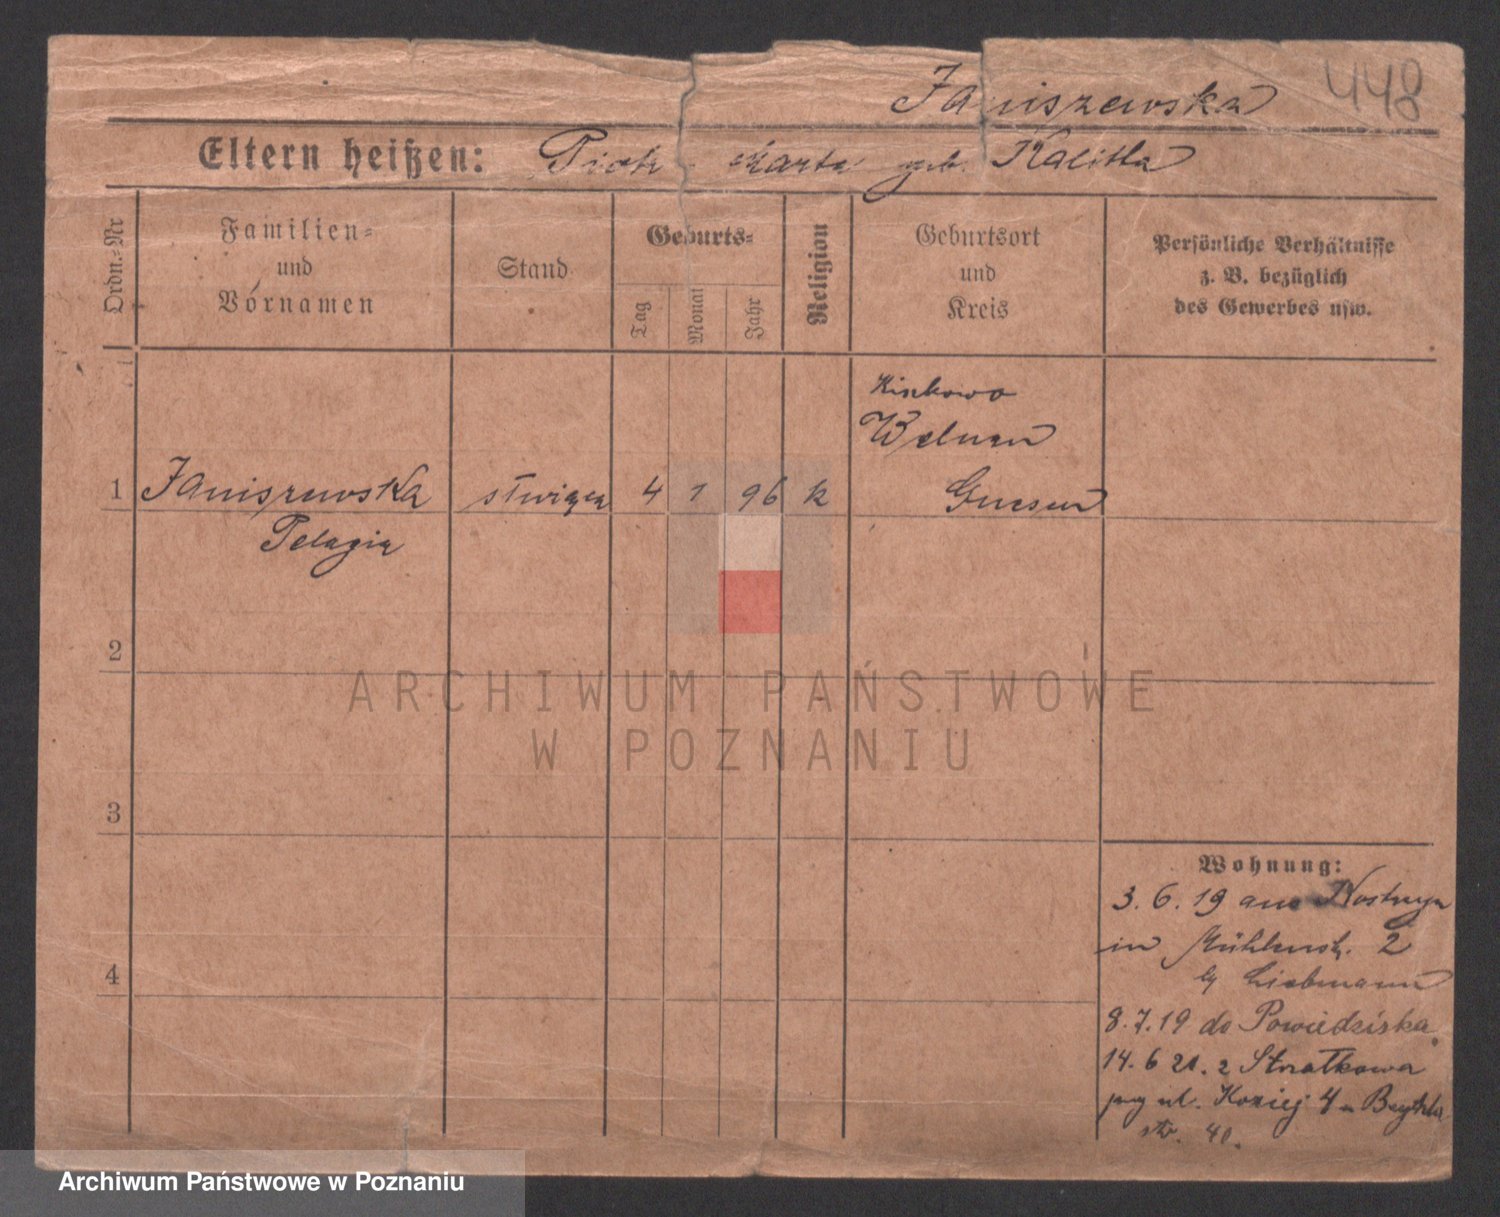 448
Janiszewska
Eltern heißen: Piotr - Marta geb. Kalitka
Ordn.-Nr
Familien=
und
Vornamen
Stand
Geburts=
Tag
Monat
Jahr
Religion
Geburtsort
und
Kreis
Persönliche Verhältnisse
z. B. bezüglich
des Gewerbes usw.
Kiszkowo
Welnau
1 Janiszewska służąca 4 1 96 k Gnesen
Pelagia
2
3
4
Wohnung:
3. 6. 19 aus Kostrzyn
in Mühlenstr. 2
b/ Liebmann
8. 7. 19 do Powiedziska
14. 6 21. z Strzałkowa
przy ul. Koziej 4 u
str. 40.
ARCHIWUM PAŃSTWOWE
W POZNANIU
Archiwum Państwowe w Poznaniu